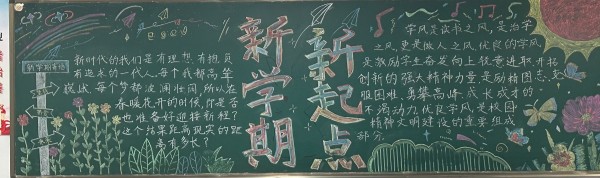 新学期来临
新时代的我们是有理想,有抱负
有追求的一代人,每个我都高举
旗帜,每个梦都波澜壮阔,所以在
春暖花开的时候,你是否
也准备好迎接新程?
这个结果距离现实的距
离有多长?
新学期
新起点
学风是读书之风,是治学
之风,更是做人之风,优良的学风
是激励学生奋发向上,锐意进取,开拓
创新的强大精神力量,是励精图志,克
服困难,勇攀高峰,成长成才的
不竭动力,优良学风是校园
精神文明建设的重要组成
部分